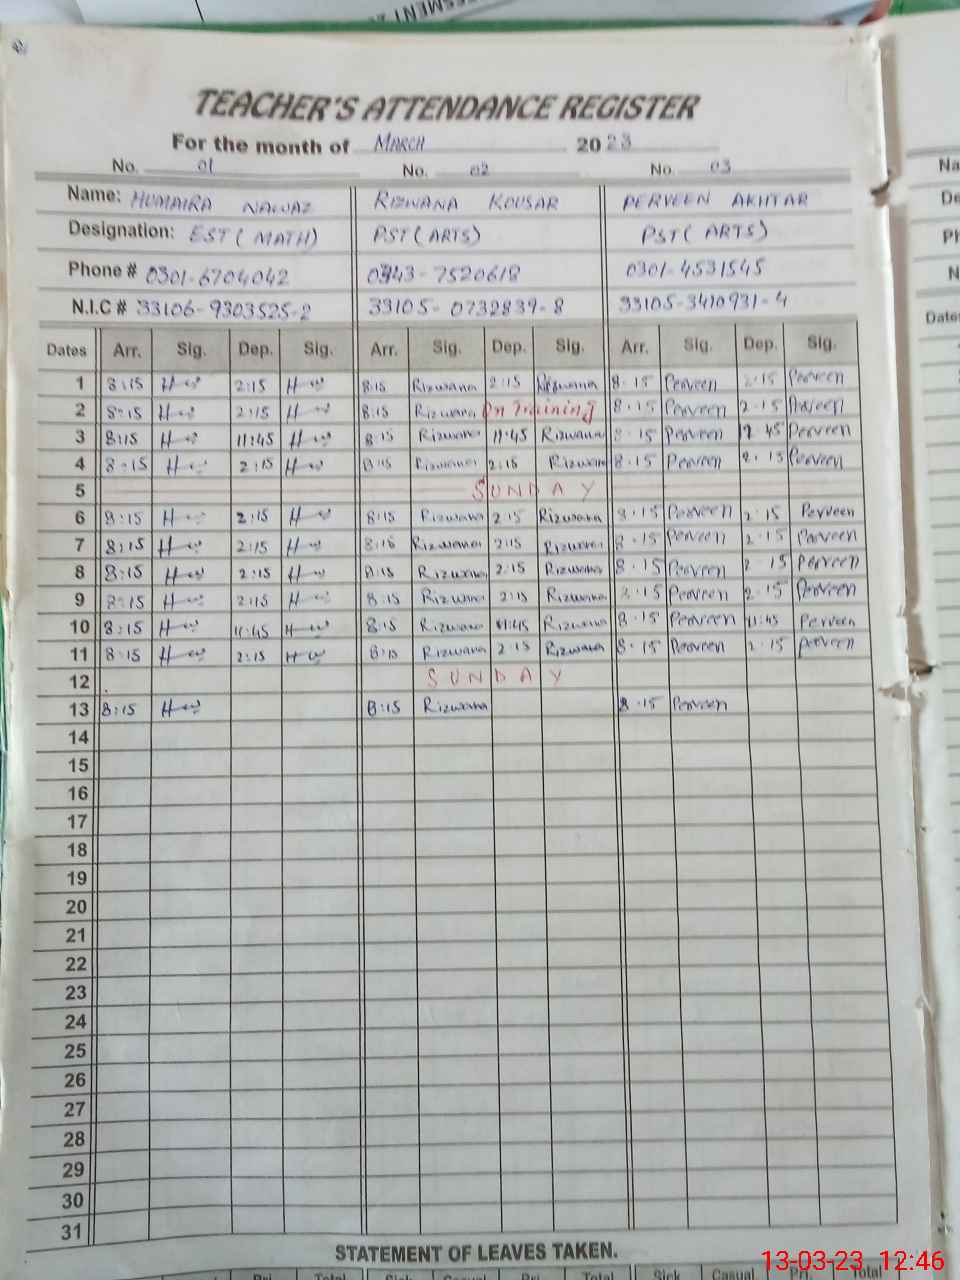 TEACHER'S ATTENDANCE REGISTER
For the month of MARCH 2023
No. 01 No. 02 No. 03
Name: HUMAIRA NAWAZ RIZWANA KOUSAR PERVEEN AKHTAR
Designation: EST (MATH) PST (ARTS) PST (ARTS)
Phone # 0301-6704042 0343-7520618 0301-4531545
N.I.C # 33106-9303525-2 33105-0732839-8 33105-3410931-4
Dates Arr. Sig. Dep. Sig. Arr. Sig. Dep. Sig. Arr. Sig. Dep. Sig.
1 8:15 2:15 8:15 Rizwana 2:15 Rizwana 8·15 Perveen 2·15 Perveen
2 8:15 2:15 8:15 Rizwana On Training 8·15 Perveen 2·15 Perveen
3 8:15 11:45 8:15 Rizwana 11:45 Rizwana 8·15 Perveen 12 45 Perveen
4 8:15 2:15 8:15 Rizwana 2:15 Rizwana 8·15 Perveen 2·15 Perveen
5 SUNDAY
6 8:15 2:15 8:15 Rizwana 2:15 Rizwana 8·15 Perveen 2·15 Perveen
7 8:15 2:15 8:15 Rizwana 2:15 Rizwana 8·15 Perveen 2·15 Perveen
8 8:15 2:15 8:15 Rizwana 2:15 Rizwana 8·15 Perveen 2·15 Perveen
9 8:15 2:15 8:15 Rizwana 2:15 Rizwana 8·15 Perveen 2·15 Perveen
10 8:15 11:45 8:15 Rizwana 11:45 Rizwana 8·15 Perveen 11:45 Perveen
11 8:15 2:15 8:15 Rizwana 2:15 Rizwana 8·15 Perveen 2·15 Perveen
12 SUNDAY
13 8:15 8:15 Rizwana 8·15 Perveen
14
15
16
17
18
19
20
21
22
23
24
25
26
27
28
29
30
31
STATEMENT OF LEAVES TAKEN.
Total Sick Casual Total Sick Casual Pri. Total
13-03-23 12:46